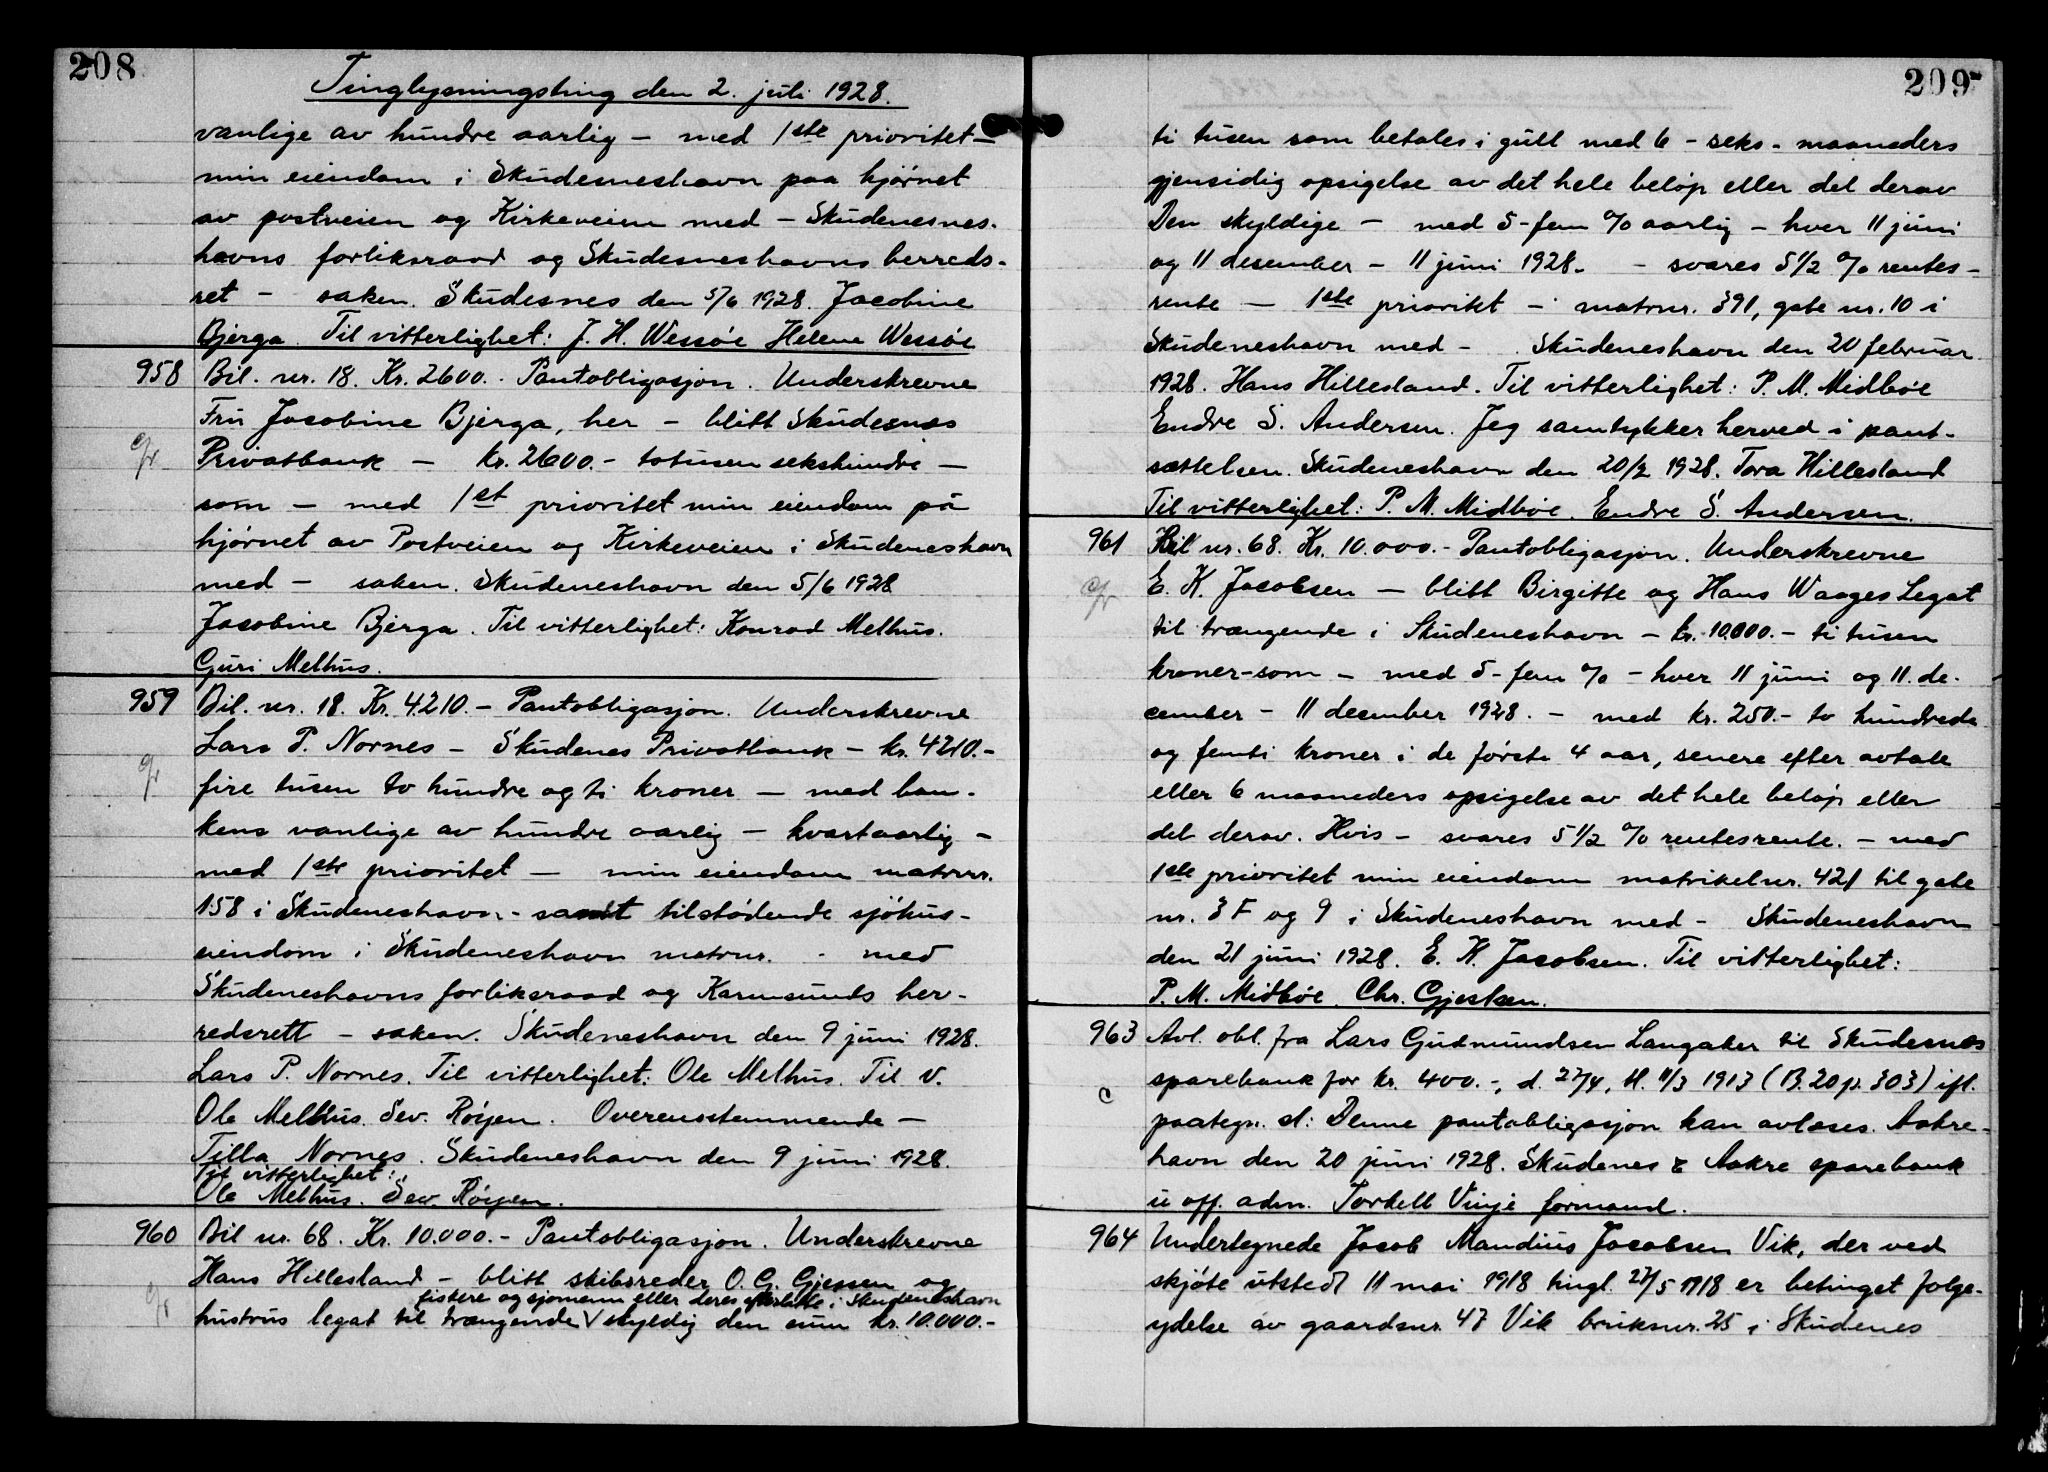 208
Tinglysningsting den 2. juli 1928.
vanlige av hundre aarlig – med 1ste prioritet –
min eiendom i Skudesneshavn paa hjørnet
av postveien og Kirkeveien med – Skudenesnes-
havns forliksraad og Skudesneshavns herreds-
ret – saken. Skudesnes den 5/6 1928. Jacobine
Bjerga. Til vitterlighet: J. H. Wessøe Helene Wessøe
958 Bil. nr. 18. Kr. 2600.- Pantobligasjon. Underskrevne
Fru Jacobine Bjerga, her – blitt Skudesnes
Privatbank – kr. 2600.- totusensekshundre –
som – med 1st prioritet min eiendom på
hjørnet av Postveien og Kirkeveien i Skudeneshavn
med – saken. Skudeneshavn den 5/6 1928
Jacobine Bjerga. Til vitterlighet: Konrad Melhus.
Guri Melhus.
959 Bil. nr. 18. Kr. 4210.- Pantobligasjon. Underskrevne
Lars P. Nornes – Skudenes Privatbank – kr. 4210.-
fire tusen to hundre og ti kroner – med ban-
kens vanlige av hundre aarlig – kvartaarlig –
med 1ste prioritet – min eiendom matrnr.
158 i Skudeneshavn - samt tilstødende sjøhus-
eiendom i Skudeneshavn matrnr. - med
Skudeneshavns forliksraad og Karmsunds her-
redsrett – saken. Skudeneshavn den 9 juni 1928.
Lars P. Nornes. Til vitterlighet: Ole Melhus. Til v.
Ole Melhus. Sev. Røijen. Overensstemmende –
Tilla Nornes. Skudeneshavn den 9 juni 1928.
Til vitterlighet:
Ole Melhus. Sev. Røijen.
960 Bil nr. 68. Kr. 10.000.- Pantobligasjon. Underskrevne
Hans Hillesland – blitt skibsreder O. G. Gjessen og
fiskere og sjømenn eller deres efterlatte i Skudeneshavn
hustrus legat til trængende skyldig den sum kr. 10.000.-
209
ti tusen som betales i gull med 6 - seks - maaneders
gjensidig opsigelse av det hele beløp eller del derav
Den skyldige – med 5 - fem % aarlig – hver 11 juni
og 11 desember – 11 juni 1928. – svares 5 1/2 % rentes-
rente – 1ste prioritet – matrnr. 391, gate nr. 10 i
Skudeneshavn med – Skudeneshavn den 20 februar
1928. Hans Hillesland. Til vitterlighet: P. M. Midbøe
Endre S. Andersen. Jeg samtykker herved i pant-
sættelsen. Skudeneshavn den 20/2 1928. Tora Hillesland
Til vitterlighet: P. M. Midbøe. Endre S. Andersen.
961 Bil nr. 68. Kr. 10.000.- Pantobligasjon. Underskrevne
E. K. Jacobsen – blitt Birgitte og Hans Waages Legat
til trængende i Skudeneshavn – kr. 10.000.- ti tusen
kroner - som – med 5 - fem % – hver 11 juni og 11. de-
cember – 11 december 1928. – med kr. 250.- to hundrede
og femti kroner i de første 4 aar, senere efter avtale
eller 6 maaneders opsigelse av det hele beløp eller
del derav. Hvis – svares 5 1/2 % rentesrente. – med
1ste prioritet min eiendom matrikelnr. 421 til gate
nr. 3 F og 9 i Skudeneshavn med – Skudeneshavn
den 21 juni 1928. E. K. Jacobsen. Til vitterlighet:
P. M. Midbøe. Chr. Gjestsen.
963 Avl. obl. fra Lars Gudmundsen Langaker til Skudesnes
c
sparebank for kr. 400.-, d. 27/4, tl. 11/3 1913 (B. 20 p. 303) ifl.
paategn. sl: Denne pantobligasjon kan avlæses. Aakre-
havn den 20 juni 1928. Skudenes & Aakre sparebank
u off. adm. Torkell Vinje formand.
964 Undertegnede Jacob Mandius Jacobsen Vik, der ved
skjøte utstedt 11 mai 1918 tingl. 27/5 1918 er betinget følge-
ydelse av gaardsnr. 47 Vik bruksnr. 25 i Skudenes